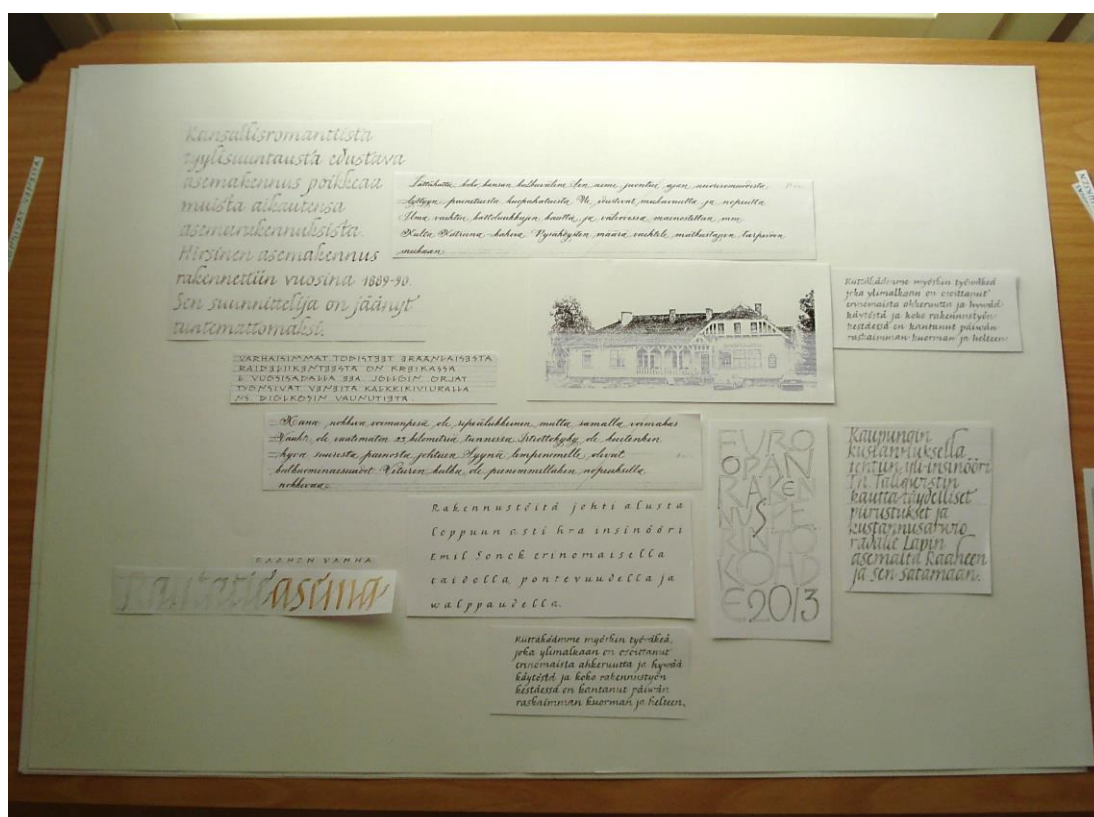 Kansallisromanttista
tyylisuuntausta edustava
asemakennus poikkeaa
muista aikautensa
asemarukennuksista.
Hirsinen asemakennus
rakennettiin vuosina 1889-90.
Sen suunnittelija on jäänyt
tuntemattomaksi.
Lättähattu koko kansan kulkuväline Sen nimi juontui ajan nuorisomuodista
lyttyyn painetusta huopahatusta Ne edustivat mukavuutta ja nopeutta
Ilma vaihtui kattoluukkujen kautta ja väliovessa mainostettiin mm
Kulta Katriina kahvia Pysähdysten määrä vaihteli matkustajien tarpeiden
mukaan
Kiittäkäämme myöskin työväkeä
joka ylimalkaan on osoittanut
erinomaista ahkeruutta ja hywää
käytöstä ja koko rakennustyön
kestäessä on kantanut päiwän
raskaimman kuorman ja helteen.
VARHAISIMMAT TODISTEET ERÄÄNLAISESTA
RAIDELIIKENTEESTÄ ON KREIKASSA
6 VUOSISADALLA EEA. JOLLOIN ORJAT
TYÖNSIVÄT VENEITÄ KALKKIKIVIURALLA
NS. DIOLKOSIN VAUNUTIETÄ.
Kana nokkiva voimanpesä oli repäilukkuinen mutta samalla voimakas
Vauhti oli vaatimaton 25 kilometriä tunnissa Irtiottokyky oli kuitenkin
hyvä suuresta painosta johtuen Syynä lempinimelle olivat
kulkuominaisuudet Veturin kulku oli pienimmilläkin nopeuksilla
nokkivaa
EURO
OPAN
RAKEN
NUSPE
RINTÖ
KOHD
E 2013
Kaupungin
kustannuksella
tehtiin yli-insinööri
Tn. Tallqvistin
kautta täydelliset
piirustukset ja
kustannusarvio
radalle Lapin
asemalta Raaheen
ja sen satamaan.
Rakennustöitä johti alusta
loppuun asti h-ra insinööri
Emil Sonck erinomaisella
taidolla, pontevuudella ja
walppaudella.
RAAHEN VANHA
Rautatieasema
Kiittäkäämme myöskin työväkeä,
joka ylimalkaan on osoittanut
erinomaista ahkeruutta ja hywää
käytöstä ja koko rakennustyön
kestäessä on kantanut päiwän
raskaimman kuorman ja helteen.